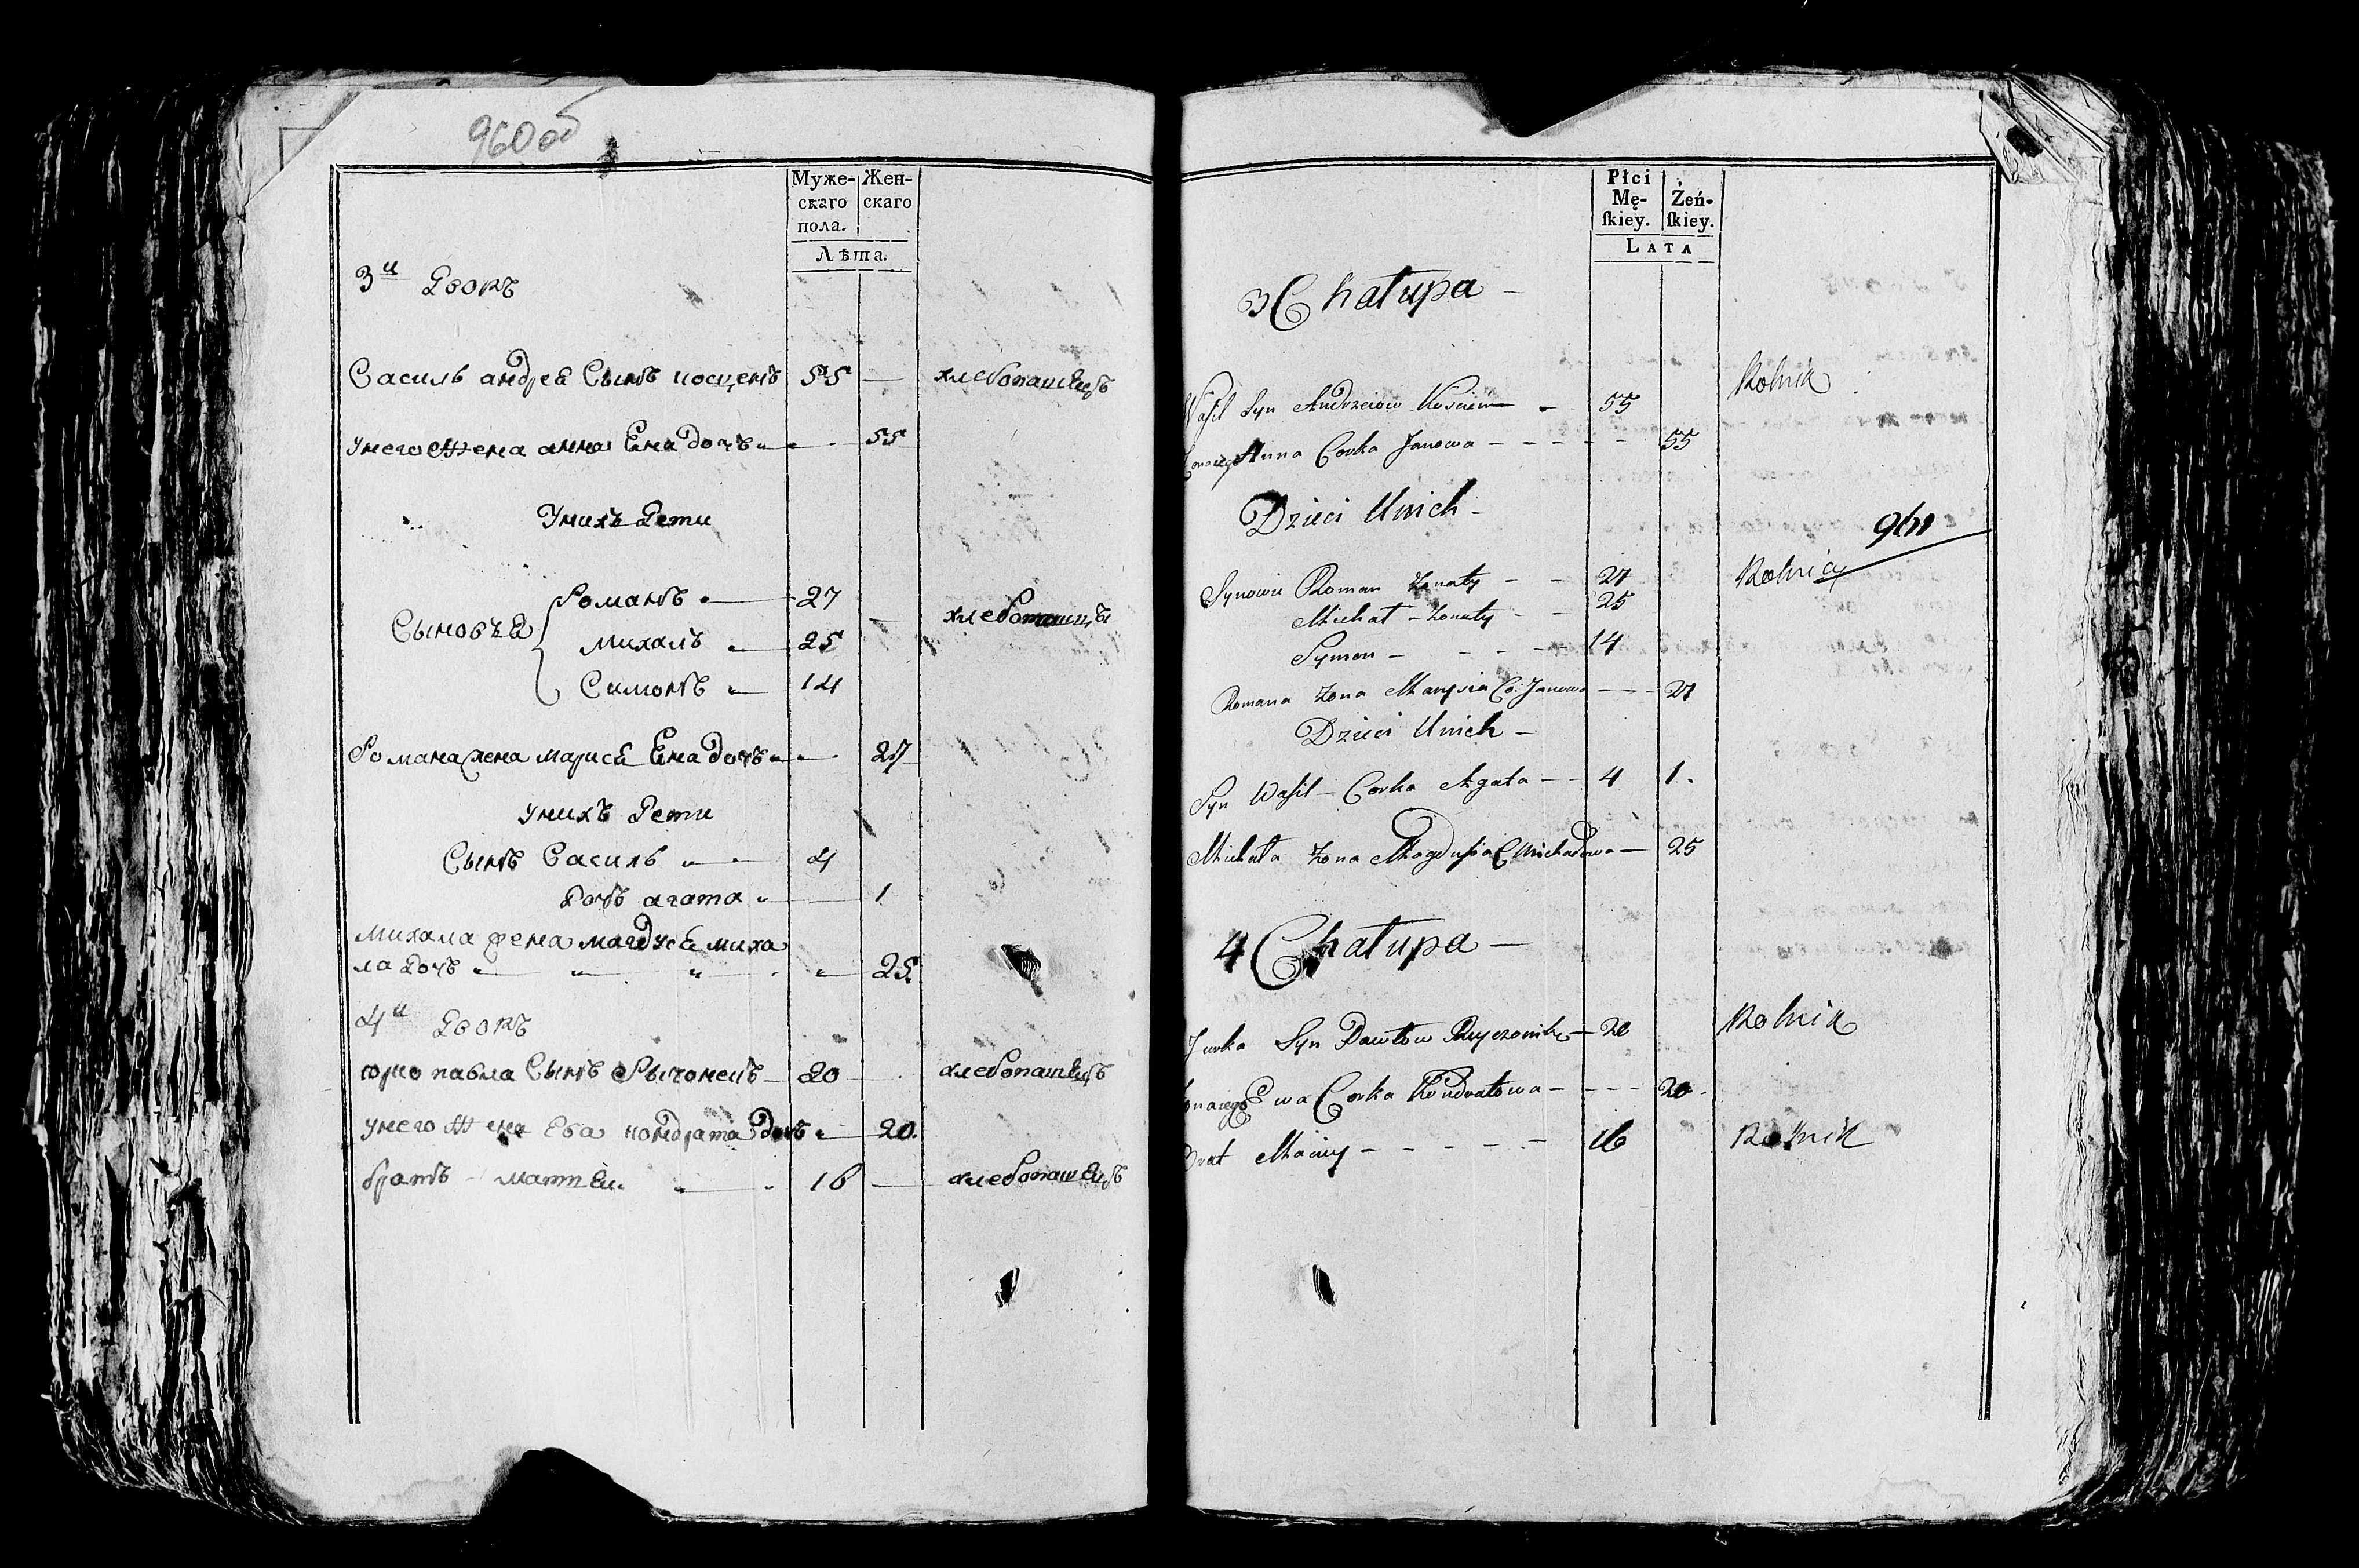 960 об
Муже-
скаго
пола.
Жен-
скаго
Лѣта.
3й Дворъ
Василь андрея Сынъ косценъ 55 — хлебопашецъ
унего жена анна Яна дочь — 55
Унихъ Дети
Сыновья
Романъ — 27
Михалъ — 25 — хлебопашцы
Симонъ — 14
Романа жена марися Яна дочь — 27
унихъ Дети
Сынъ Василь — 4
Дочь агата — 1
Михала жена магдуся миха
ла дочь — 25
4й Дворъ
юрко павла Сынъ Рычонекъ — 20 — хлебопашецъ
унего жена Ева кондрата дочь — 20.
братъ — маттей — 16 — хлебопашецъ
Płci
Mę-
ſkiey.
Żeń-
ſkiey.
LATA
3 Chałupa —
Waſil Syn Andrzeiow Koscien — 55 Rolnik
Żona iego Anna Corka Janowa — — — — 55
Dzieci Unich —
961
Synowie Roman żonaty — — 27 Rolnicy
Michał — żonaty — — 25
Symon — — — — 14
Romana żona Marysia Co: Janowa — — — 27
Dzieci Unich —
Syn Waſil — Corka Agata — — 4 1.
Michała żona Magduſia C Michałowa — 25
4 Chałupa —
Jurka Syn Pawłow Ryczonek — 20 Rolnik
Żona iego Ewa Corka Kondratowa — — — — 20.
Brat Maciey — — — — — — 16 Rolnik